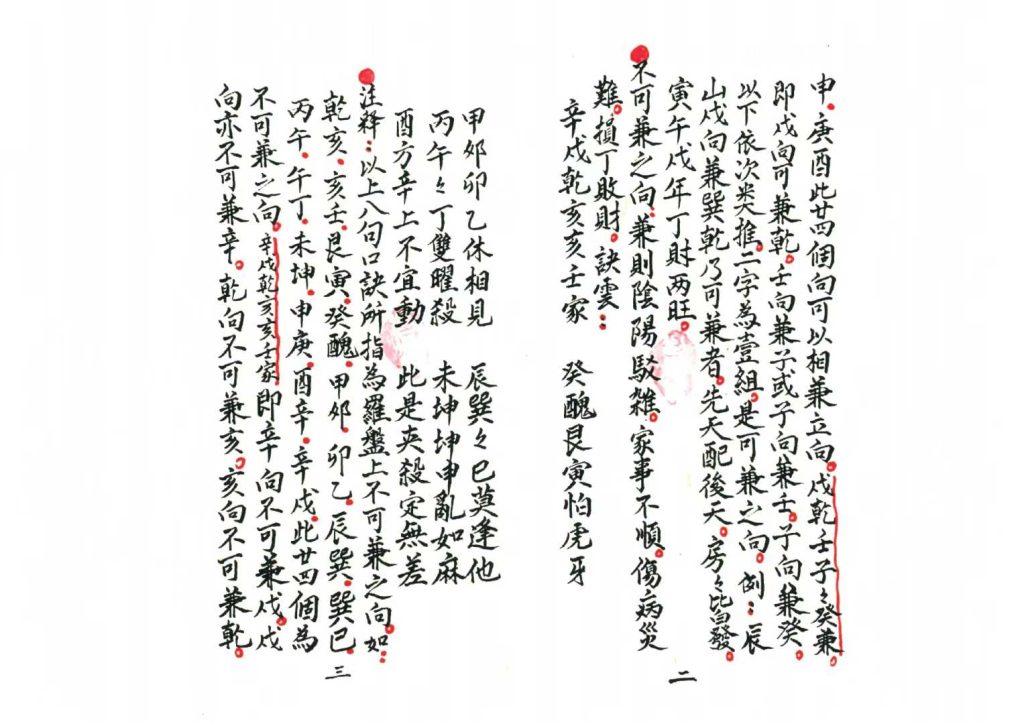 申。庚酉此廿四個向可以相兼立向。戌乾壬子々癸兼。
即戌向可兼乾。壬向兼子或子向兼壬。子向兼癸。
以下依次类推。二字為壹組。是可兼之向。例：辰
山戌向兼巽乾乃可兼者。先天配後天。房々皆發。
寅午戌年丁財两旺。
不可兼之向：兼則陰陽駁雑。家事不順。傷病災
難。損丁敗財。訣雲：
辛戌乾亥亥壬家　癸醜艮寅怕虎牙
二
甲卯卯乙休相見　辰巽々巳莫逢他
丙午々丁雙曜殺　未坤坤申亂如麻
酉方辛上不宜動　此是夹殺定無差
注释：以上八句口訣所指為羅盤上不可兼之向。如：
乾亥。亥壬。艮寅。癸醜。甲卯。卯乙。辰巽。巽巳。
丙午。午丁。未坤。申庚。酉辛。辛戌。此廿四個為
不可兼之向。辛戌乾亥亥壬家即辛向不可兼戌。戌
向亦不可兼辛。乾向不可兼亥。亥向不可兼乾。
三